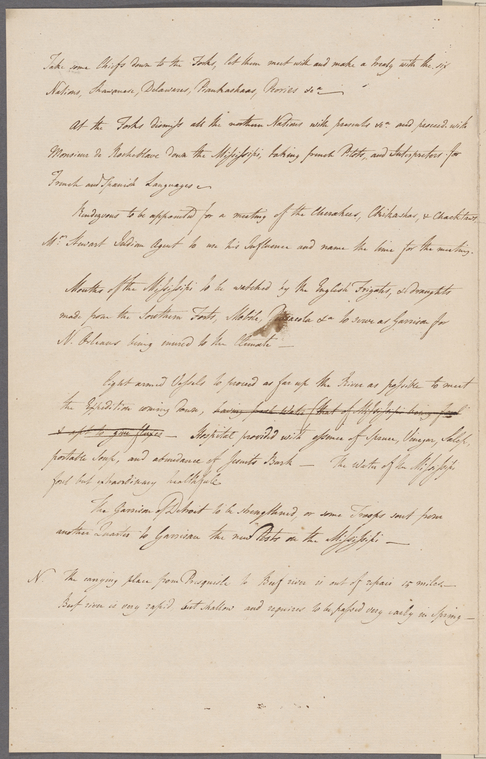 Take some Chiefs down to the Forks, let them meet with and make a treaty with the six
Nations, Shawanese, Delawares, Piankashaas, Peories &ca
At the Forks dismiss all the northern Nations with presents &ca and proceed with
Monsieur de Rocheblave down the Mississipi, taking french Pilots, and Interpreters for
French and Spanish Languages
Rendezvous to be appointed for a meeting of the Cherakees, Chikashas, & Chacktaws
Mr. Stewart Indian Agent to use his Influence and name the time for the meeting.
Mouths of the Mississipi to be watched by the English Frigates, & draughts
made from the Southern Forts, Mobile, &ca to serve as Garrison for
N. Orleans being enured to the Climate
light armed Vessels to proceed as far up the River as possible to meet
the Expedition coming down, having fresh Water (that of Missisipi being foul
& apt to give fluxes — Hospital provided with essence of Spruce, Vinegar, Salep,
portable Soup, and abundance of Jesuits Bark — The Water of the Mississipi
foul but extraordinary healthfull
The Garrison of Detroit to be strengthened, or some Troops sent from
another Quarter to Garrison the new Posts on the Mississipi —
N The carrying place from Presquisle to Beef river is out of repair 15 miles
Beef river is very rapid but shallow and requires to be passed very early in Spring